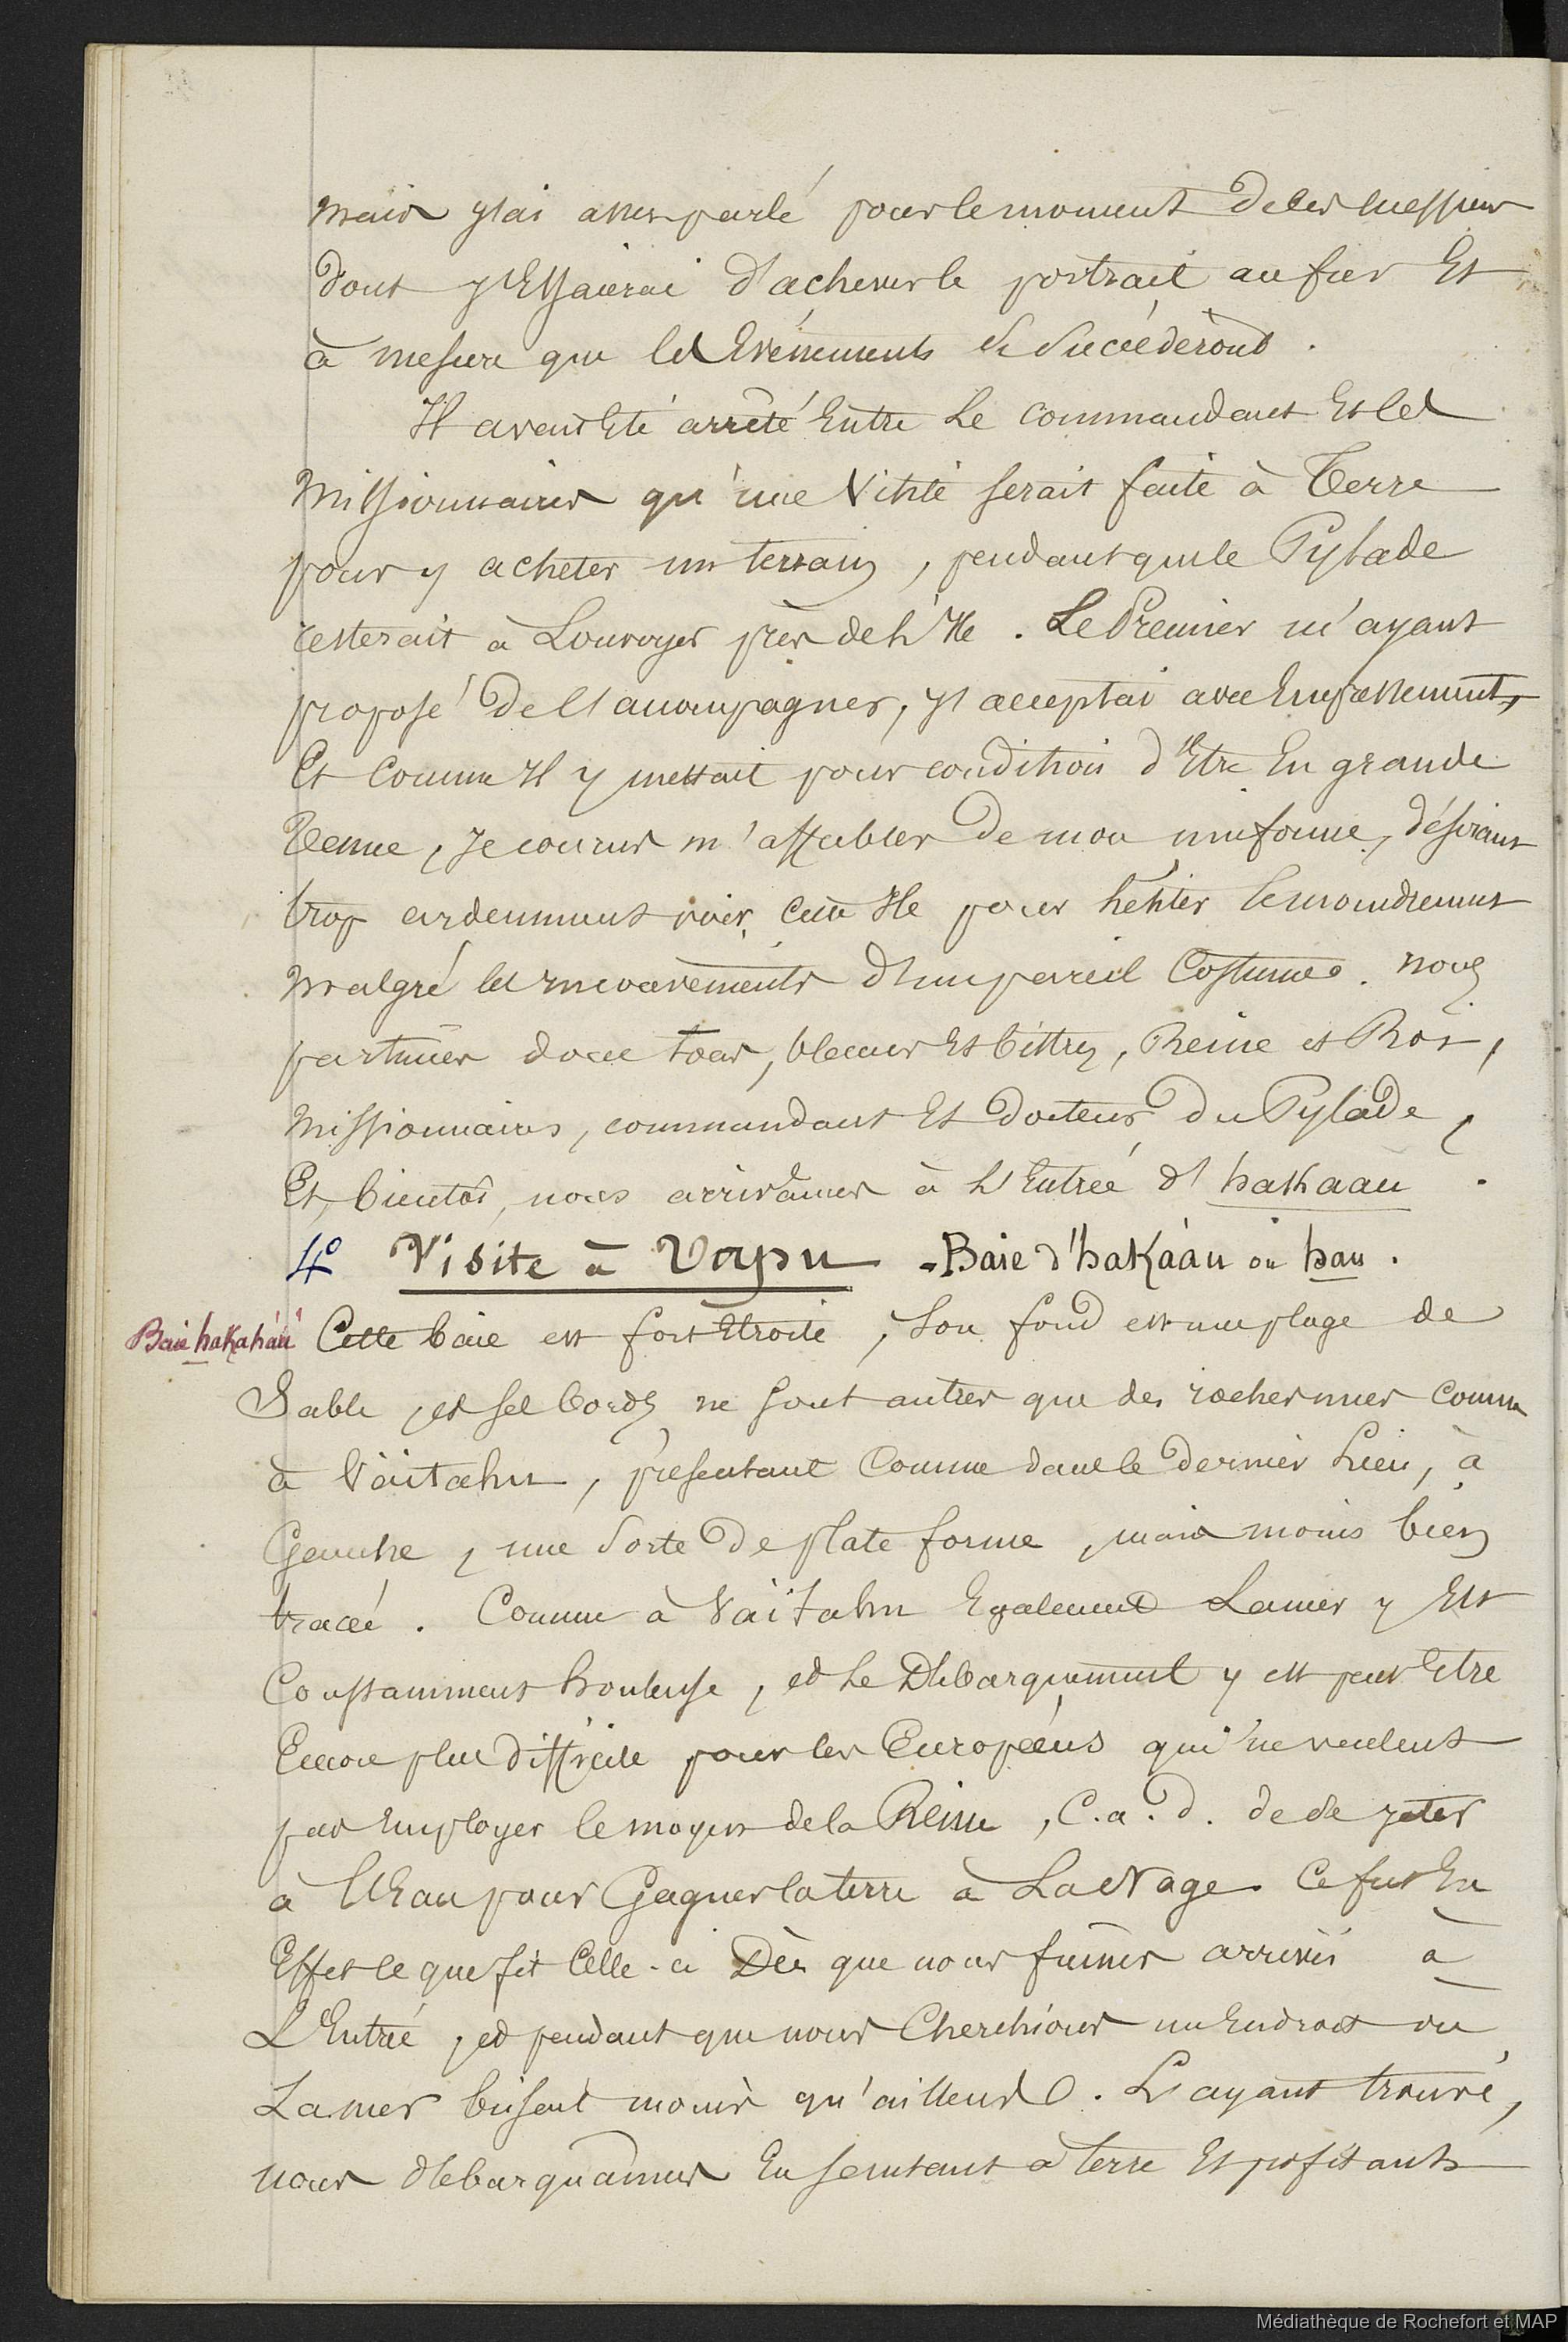 mais j'ai assez parlé pour le moment de ces messieurs
dont j'Essaierai d'achever le portrait au fur Et
à mesure que les Evénements se succéderont.
Il avait Eté arrêté Entre Le commandant Et les
Missionnaires qu'une Visite serait faite à Terre
pour y acheter un terrain, pendant que le Pylade
resterait à Louvoyer près de L'Ile. Le Premier m'ayant
proposé De l'accompagner, j'acceptai avec Empressement,
Et Comme Il y mettait pour condition d'Etre En grande
Tenue, Je courus m'affubler De mon uniforme, désirant
trop ardemment voir cette Ile pour hésiter le moindrement
malgré les mouvements d'un pareil Costume. nous
partimes donc tous, blancs Et bistrés, Reine et Roi,
Missionnaires, commandant Et Docteur Du Pylade,
Et, bientôt, nous arrivâmes à L'Entrée d'hakaau.
4° Visite à Vapu - Baie d'hakàau ou hau.
Baie hakahàu
Cette baie est fort Etroite, Son fond est une plage de
Sable, et ses bords ne sont autres que des rochers nus comme
à Vaitahu, présentant Comme dans le Dernier Lieu, à
Gauche, une Sorte De plate forme, mais moins bien
tracée. Comme à Vaitahu Egalement La mer y Est
Constamment houleuse, et Le Débarquement y est peut Etre
Encore plus difficile pour les Européens qui ne veulent
pas Employer le moyen de la Reine, C.a.d. de se jeter
à L'Eau pour Gagner la terre à La Nage. Ce fut En
Effet ce que fit Celle-ci Dès que nous fûmes arrivés à
L'Entrée, et pendant que nous Cherchions un Endroit où
La mer brisait moins qu'ailleurs. L'ayant trouvé,
nous débarquâmes En sautant à terre Et profitants